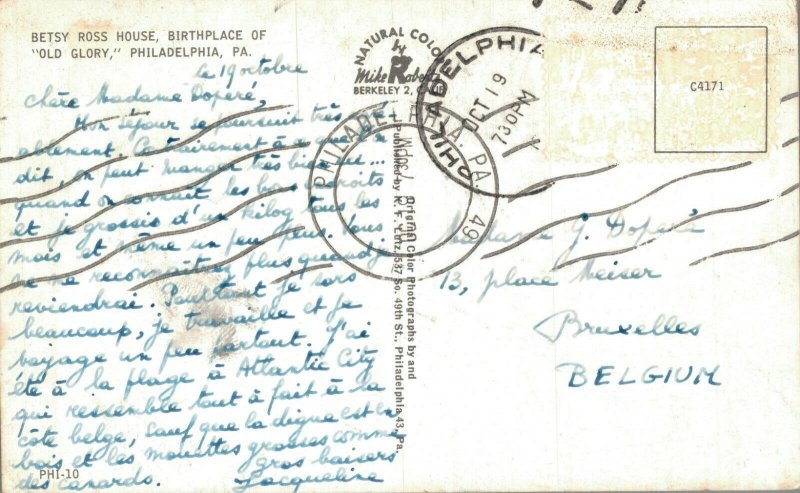 BETSY ROSS HOUSE, BIRTHPLACE OF
"OLD GLORY," PHILADELPHIA, PA.
le 19 octobre
Chère Madame Doperé,
Mon séjour se poursuit très
ablement. Contrairement à ce qu'on
dit, on peut manger très bien ici...
quand on connait les bons endroits
et je grossis d'un kilog tous les
mois et même un peu plus. Vous
ne me reconnaîtrez plus quand je
reviendrai. Pourtant je sors
beaucoup, je travaille et je
voyage un peu partout. J'ai
été à la plage à Atlantic City
qui ressemble tout à fait à la
côte belge, sauf que la digue est en
bois et les mouettes grosses comme
des canards.
Gros baisers
Jacqueline
PHI-10
NATURAL COLOR
by
Mike Roberts
BERKELEY 2, CALIF
Original Color Photographs by and
Published by K. F. Lutz, 537 So. 49th St., Philadelphia 43, Pa.
PHILADELPHIA, PA. 49
PHILADELPHIA
OCT 19
730PM
C4171
Madame G. Doperé
13, place Meiser
Bruxelles
BELGIUM